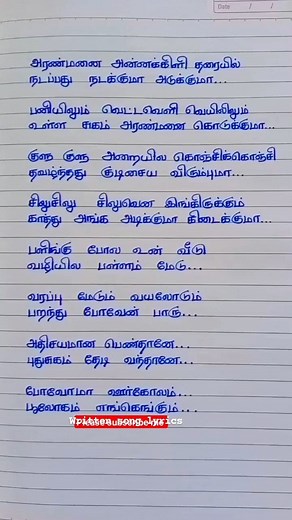 Date / /
அரண்மனை அன்னக்கிளி தரையில
நடப்பது நடக்குமா அடுக்குமா...
பனியிலும் வெட்டவெளி வெயிலிலும்
உள்ள சுகம் அரண்மனை கொடுக்குமா...
குளு குளு அறையில கொஞ்சிக்கொஞ்சி
தவழ்ந்தது குடிசைய விரும்புமா...
சிலுசிலு சிலுவென இங்கிருக்கும்
காத்து அங்க அடிக்குமா கிடைக்குமா...
பளிங்கு போல உன் வீடு
வழியில பள்ளம் மேடு...
வரப்பு மேடும் வயலோடும்
பறந்து போவேன் பாரு...
அதிசயமான பெண்தானே...
புதுசுகம் தேடி வந்தானே...
போவோமா ஊர்கோலம்...
பூலோகம் எங்கெங்கும்...
Written song lyrics
Please subscribe me